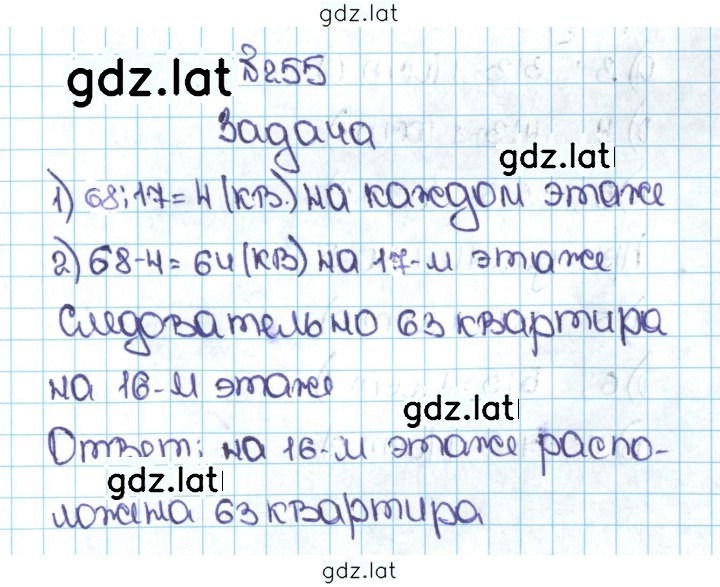 gdz.lat
gdz.lat №255
Задача
gdz.lat
1) 68:17=4 (кв.) на каждом этаже
2) 68-4=64 (кв) на 17-м этаже
Следовательно 63 квартира
на 16-м этаже
gdz.lat
Ответ: на 16-м этаже распо-
gdz.lat
ложена 63 квартира
gdz.lat